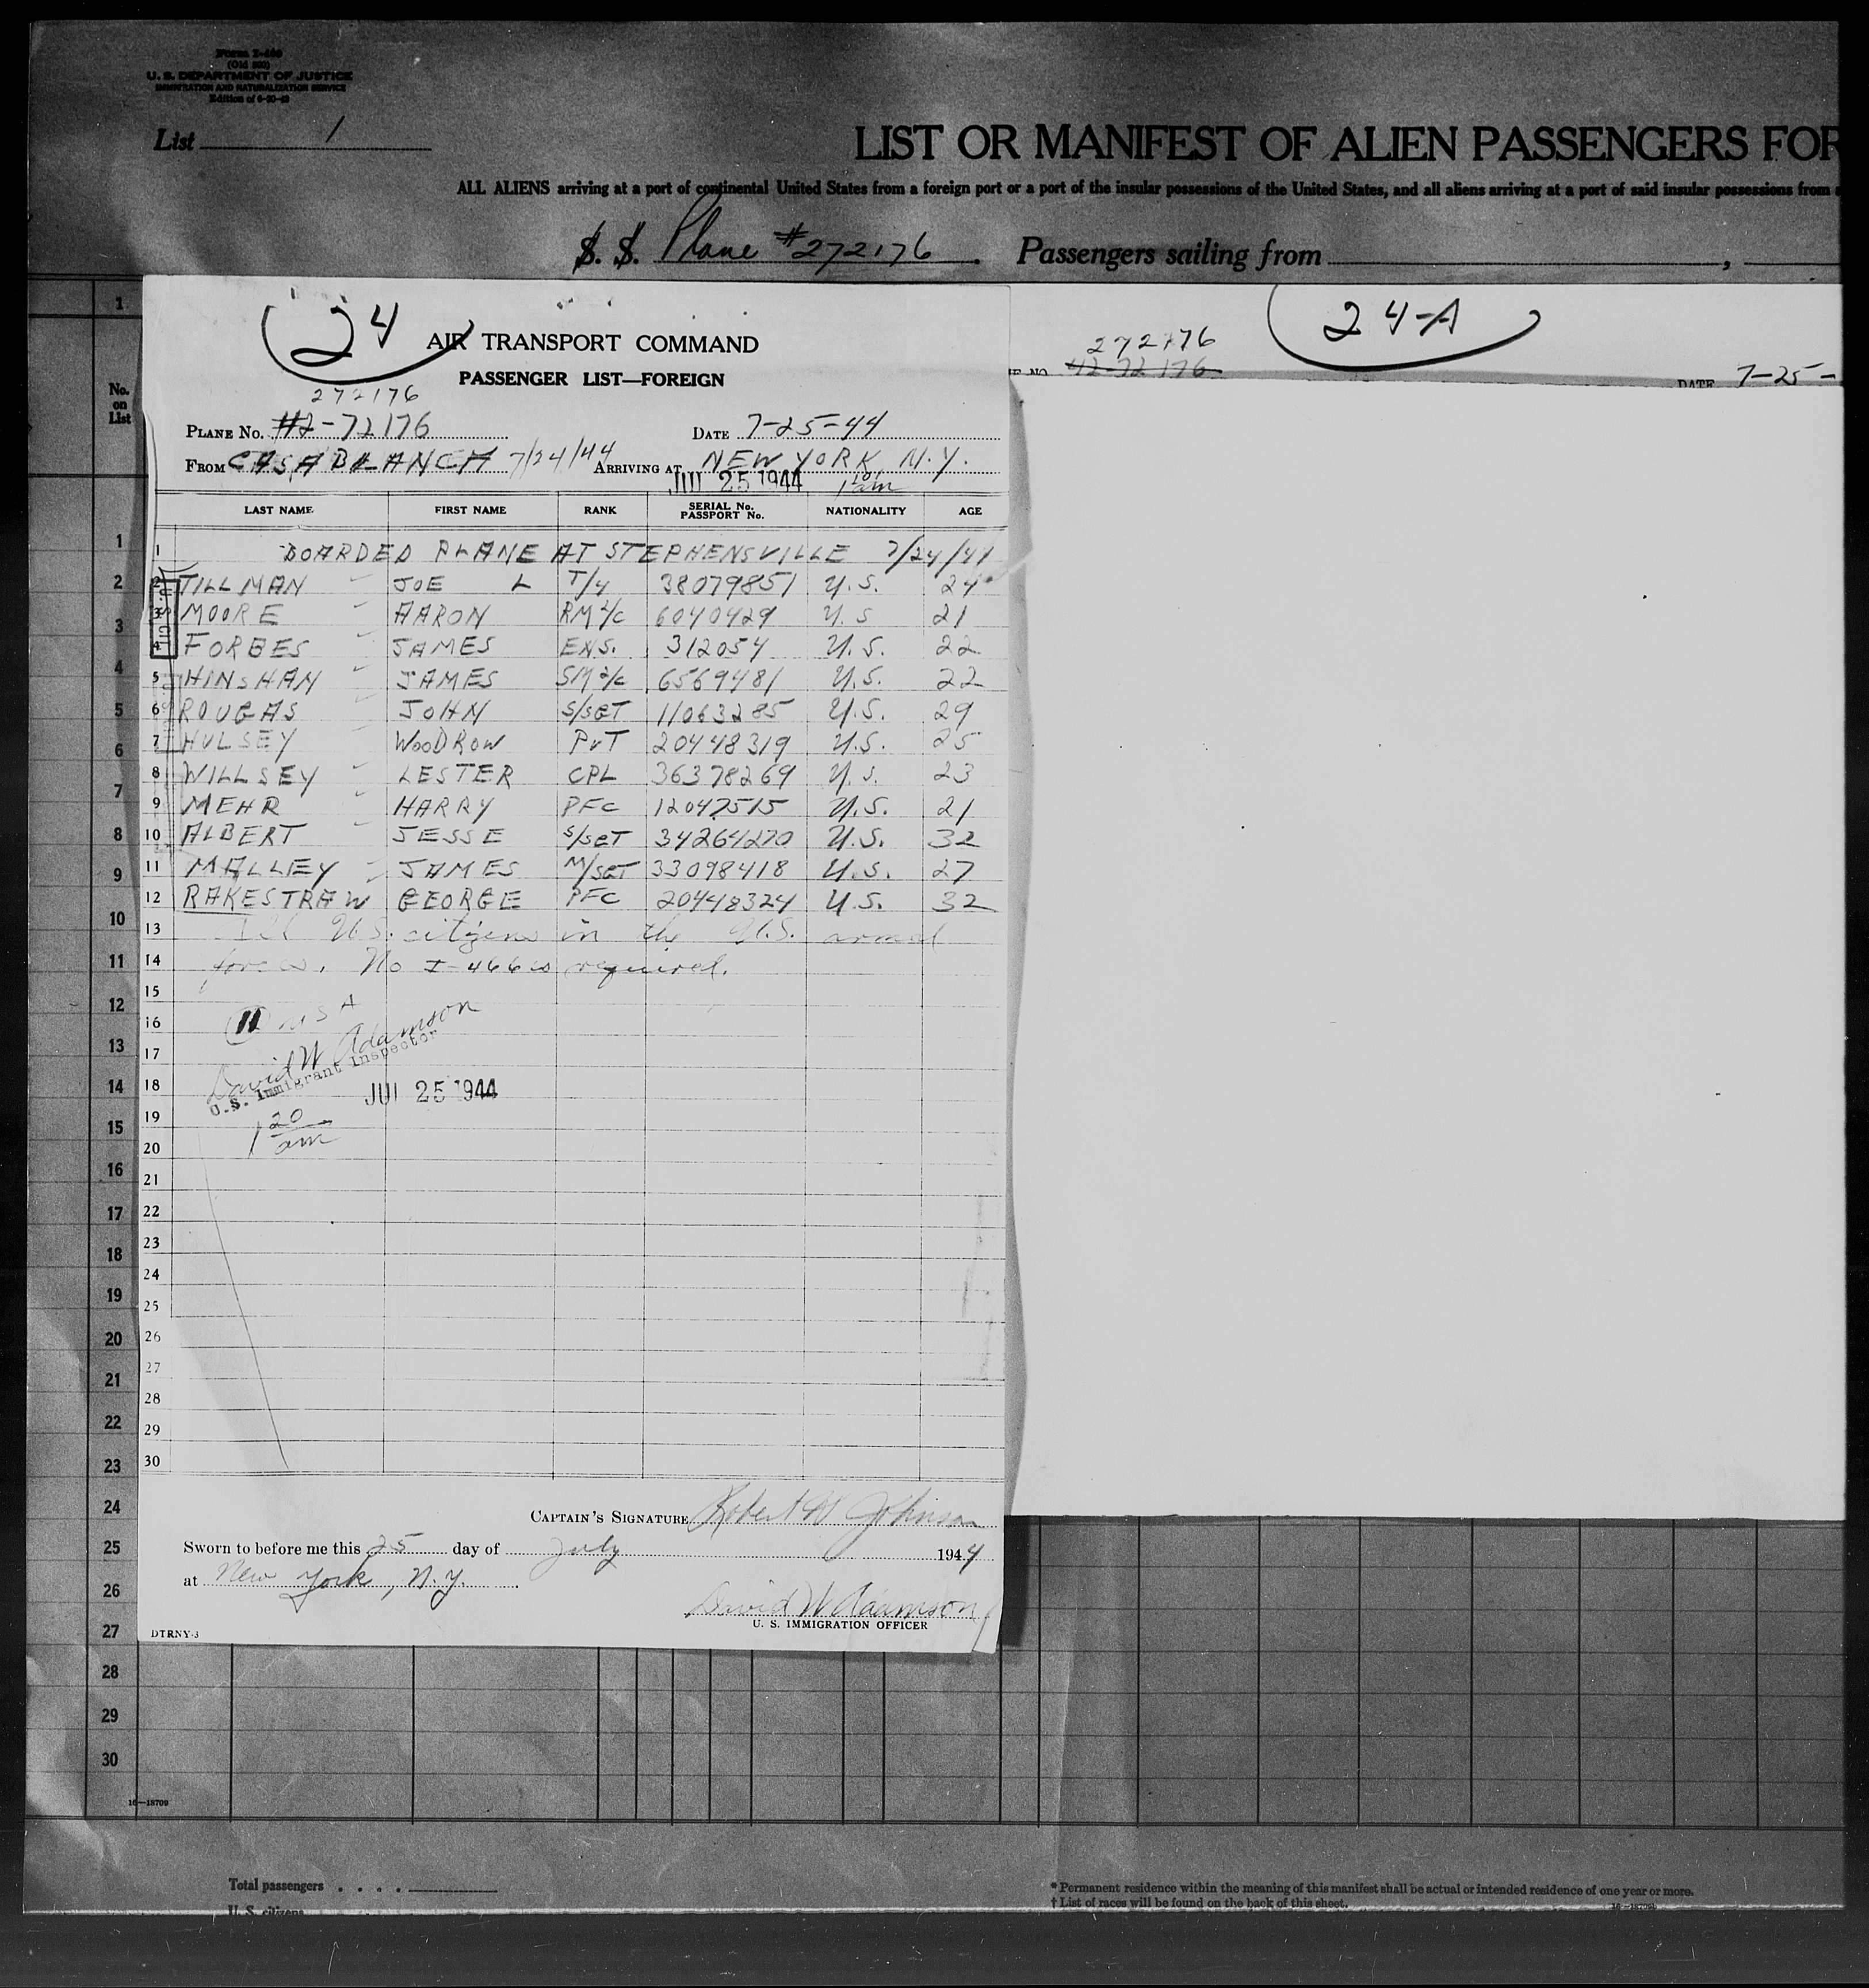 Form I-466
(Old 502)
U. S. DEPARTMENT OF JUSTICE
IMMIGRATION AND NATURALIZATION SERVICE
Edition of
List 1
LIST OR MANIFEST OF ALIEN PASSENGERS FOR
ALL ALIENS arriving at a port of continental United States from a foreign port or a port of the insular possessions of the United States, and all aliens arriving at a port of said insular possessions from a
S. S. Plane #272176. Passengers sailing from ,
24
AIR TRANSPORT COMMAND
PASSENGER LIST—FOREIGN
272176
PLANE NO. #2-72176 DATE 7-25-44
FROM CASABLANCA 7/24/44 ARRIVING AT NEW YORK N.Y.
JUL 25 1944 am
24-A
272176
NO. 42-72176 DATE 7-25-
No. on List
LAST NAME FIRST NAME RANK SERIAL No. PASSPORT No. NATIONALITY AGE
1 BOARDED PLANE AT STEPHENSVILLE 7/24/44
2 TILLMAN JOE L T/4 38079851 U.S. 24
3 MOORE AARON RM 2/c 6040429 U.S 21
4 FORBES JAMES ENS. 312054 U.S. 22
5 HINSHAN JAMES SM 2/c 6569481 U.S. 22
6 ROUGAS JOHN S/SGT 11063285 U.S. 29
7 HULSEY WOODROW PVT 20448319 U.S. 25
8 WILLSEY LESTER CPL 36378269 U.S. 23
9 MEHR HARRY PFC 12047515 U.S. 21
10 ALBERT JESSE S/SGT 34264270 U.S. 32
11 MALLEY JAMES M/SGT 33098418 U.S. 27
12 RAKESTRAW GEORGE PFC 20448324 U.S. 32
13 All U.S. citizens in the U.S. armed
14 forces. No I-466 is required.
15
16 11 USA
17 David W Adamson
U.S. Immigrant Inspector
18 JUL 25 1944
19 1 20
20 am
21
22
23
24
25
26
27
28
29
30
CAPTAIN'S SIGNATURE Robert W Johnson
Sworn to before me this 25 day of July 1944
at New York, N.Y.
David W Adamson
U. S. IMMIGRATION OFFICER
DTRNY-3
1
2
3
4
5
6
7
8
9
10
11
12
13
14
15
16
17
18
19
20
21
22
23
24
25
26
27
28
29
30
16—18709
Total passengers . . . .
U. S. citizens
* Permanent residence within the meaning of this manifest shall be actual or intended residence of one year or more.
† List of races will be found on the back of this sheet.